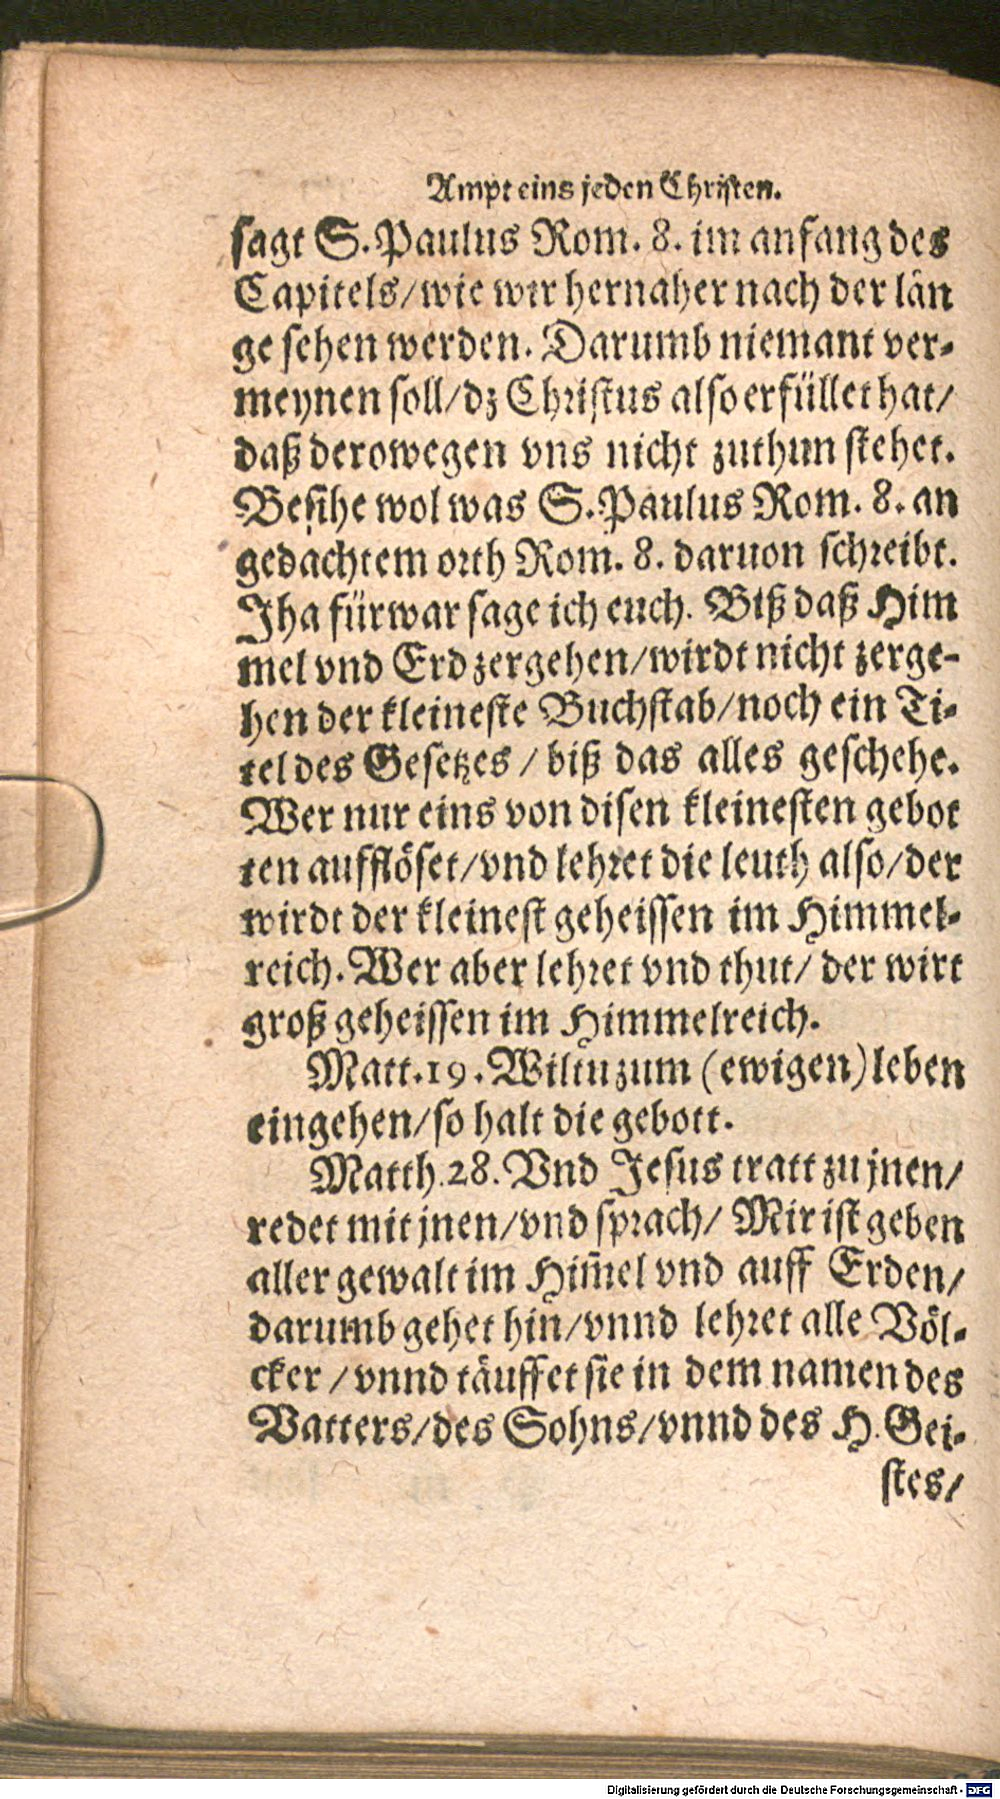 Ampt eins jeden Christen.
sagt S. Paulus Rom. 8. im anfang des
Capitels/wie wir hernaher nach der län
ge sehen werden. Darumb niemant ver-
meynen soll/dz Christus also erfüllet hat/
daß derowegen vns nicht zuthun stehet.
Besihe wol was S. Paulus Rom. 8. an
gedachtem orth Rom. 8. daruon schreibt.
Jha fürwar sage ich euch. Biß daß Him
mel vnd Erd zergehen/wirdt nicht zerge-
hen der kleineste Buchstab/noch ein Ti-
tel des Gesetzes / biß das alles geschehe.
Wer nur eins von disen kleinesten gebot
ten aufflöset/vnd lehret die leuth also/der
wirdt der kleinest geheissen im Himmel-
reich. Wer aber lehret vnd thut/ der wirt
groß geheissen im Himmelreich.
Matt. 19. Wiltu zum (ewigen) leben
eingehen/so halt die gebott.
Matth. 28. Vnd Jesus tratt zu jnen/
redet mit jnen/vnd sprach/ Mir ist geben
aller gewalt im Him̃el vnd auff Erden/
darumb gehet hin/vnnd lehret alle Völ-
cker / vnnd täuffet sie in dem namen des
Vatters/des Sohns/vnnd des H. Gei-
stes/
Digitalisierung gefördert durch die Deutsche Forschungsgemeinschaft - DFG